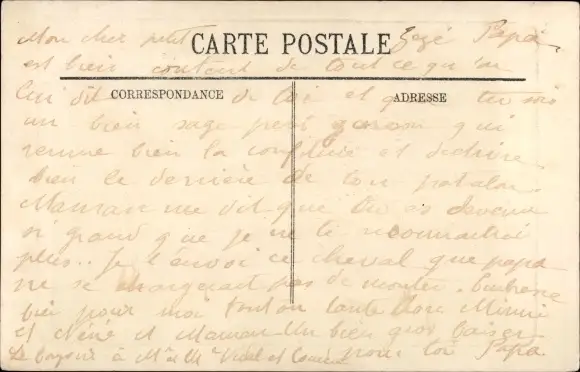 CARTE POSTALE
CORRESPONDANCE
ADRESSE
Mon cher petit Zezé Papa
est bien content de tout ce qu'on
lui dit de toi et que tu sois
un bien sage petit garson qui
remue bien la confiture et déchire
bien le derrière de ton patalon.
Maman me dit que tu as devenu
si grand que je ne te reconnaitrai
plus.. Je t'envoi ce cheval que papa
ne se chargerait pas de monter. Embrasse
bien pour moi tonton tante Mimi
et Néné et Maman Un bien gros baiser
pour toi Papa.
Le bonjour à Mr et Me Vidal et